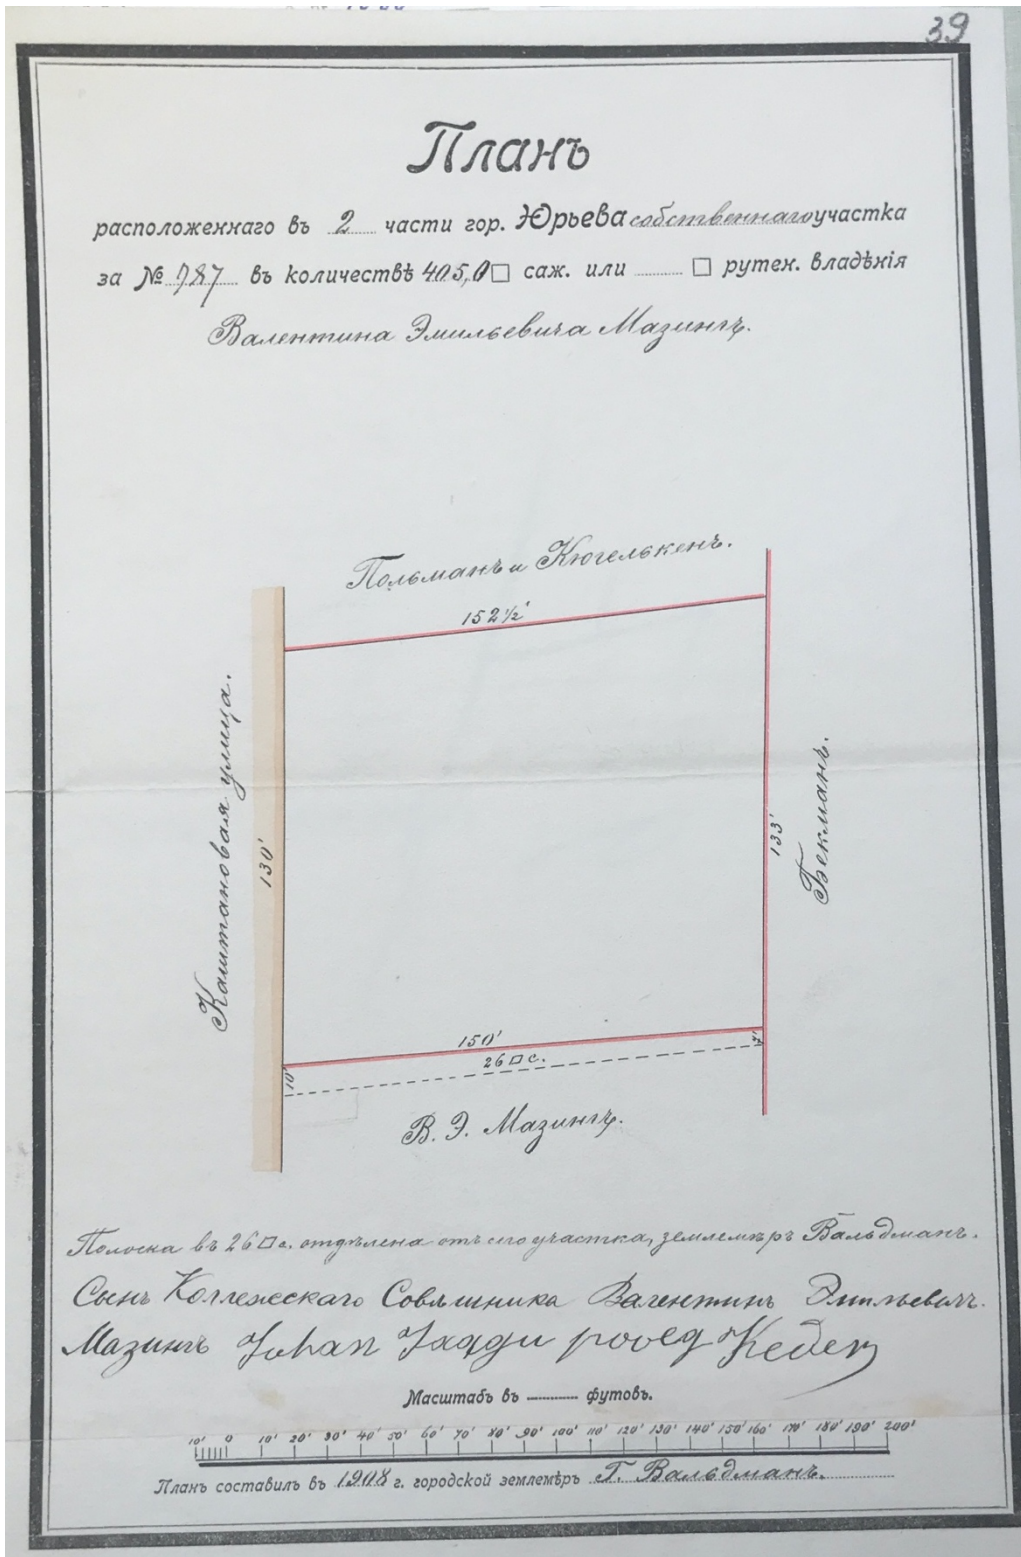 39
Планъ
расположеннаго въ 2 части гор. Юрьева собственнаго участка
за № 787 въ количествѣ 405,0 □ саж. или ........ □ рутен. владѣнія
Валентина Эмильевича Мазингъ.
Польманъ и Кюгелькенъ.
152 ½'
Каштановая улица.
130'
133'
Бекманъ.
150'
26 □ с.
10'
4'
В. Э. Мазингъ.
Полоска въ 26 □ с. отдѣлена отъ сего участка, землемѣръ Вальдманъ.
Сынъ Коллежескаго Совѣтника Валентинъ Эмильевичъ
Мазингъ Johan Jaggu poolg Keder
Масштабъ въ ———— футовъ.
10' 0 10' 20' 30' 40' 50' 60' 70' 80' 90' 100' 110' 120' 130' 140' 150' 160' 170' 180' 190' 200'
Планъ составилъ въ 1908 г. городской землемѣръ Г. Вальдманъ.